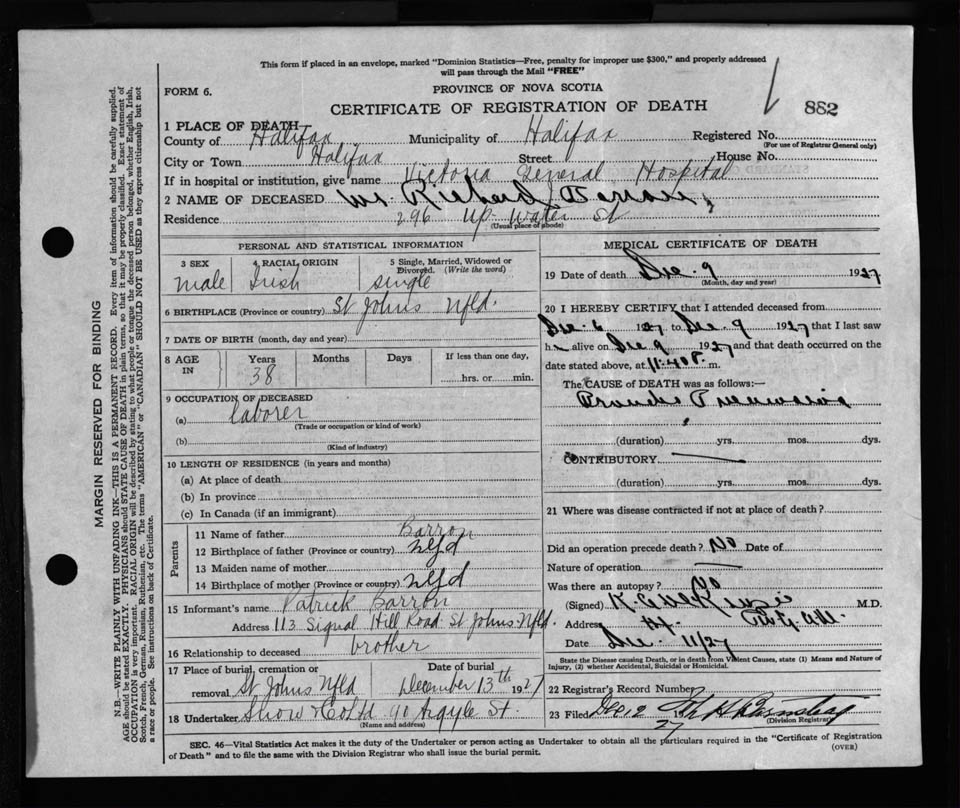 This form if placed in an envelope, marked "Dominion Statistics—Free, penalty for improper use $300," and properly addressed
will pass through the Mail "FREE"
FORM 6.
PROVINCE OF NOVA SCOTIA
CERTIFICATE OF REGISTRATION OF DEATH
882
1 PLACE OF DEATH
County of Halifax Municipality of Halifax Registered No.
(For use of Registrar General only)
City or Town Halifax Street House No.
If in hospital or institution, give name Victoria General Hospital
2 NAME OF DECEASED Mr Richard Barron
Residence 296 Up Water St
(Usual place of abode)
PERSONAL AND STATISTICAL INFORMATION
3 SEX
male
4 RACIAL ORIGIN
Irish
5 Single, Married, Widowed or
Divorced. (Write the word)
single
6 BIRTHPLACE (Province or country) St Johns Nfld.
7 DATE OF BIRTH (month, day and year)
8 AGE
IN
Years
38
Months
Days
If less than one day,
hrs. or min.
9 OCCUPATION OF DECEASED
(a) laborer
(Trade or occupation or kind of work)
(b)
(Kind of industry)
10 LENGTH OF RESIDENCE (in years and months)
(a) At place of death
(b) In province
(c) In Canada (if an immigrant)
Parents
11 Name of father Barron
12 Birthplace of father (Province or country) Nfld
13 Maiden name of mother
14 Birthplace of mother (Province or country) Nfld
15 Informant's name Patrick Barron
Address 113 Signal Hill Road St Johns Nfld.
16 Relationship to deceased brother
17 Place of burial, cremation or
removal St Johns Nfld
Date of burial
December 13th 1927
18 Undertaker Snow & Co Ltd 90 Argyle St.
(Name and address)
MEDICAL CERTIFICATE OF DEATH
19 Date of death Dec. 9 1927
(Month, day and year)
20 I HEREBY CERTIFY that I attended deceased from
Dec 6 1927 to Dec 9 1927 that I last saw
h alive on Dec 9 1927 and that death occurred on the
date stated above, at 11.40 P. m.
The CAUSE OF DEATH was as follows:—
Broncho Pneumonia
(duration) yrs. mos. dys.
CONTRIBUTORY
(duration) yrs. mos. dys.
21 Where was disease contracted if not at place of death?
Did an operation precede death? No Date of
Nature of operation
Was there an autopsy? No
(Signed) M.D.
Address
Date Dec 11/27
State the Disease causing Death, or in death from Violent Causes, state (1) Means and Nature of
Injury, (2) whether Accidental, Suicidal or Homicidal.
22 Registrar's Record Number
23 Filed Dec 12 27
(Division Registrar)
SEC. 46—Vital Statistics Act makes it the duty of the Undertaker or person acting as Undertaker to obtain all the particulars required in the "Certificate of Registration
of Death" and to file the same with the Division Registrar who shall issue the burial permit.
(OVER)
MARGIN RESERVED FOR BINDING
N.B.—WRITE PLAINLY WITH UNFADING INK—THIS IS A PERMANENT RECORD. Every item of information should be carefully supplied.
AGE should be stated EXACTLY. PHYSICIANS should STATE CAUSE OF DEATH in plain terms, so that it may be properly classified. Exact statement of
OCCUPATION is very important. RACIAL ORIGIN will be described by stating to what people or tongue the deceased person belonged, whether English, Irish,
Scotch, French, German, Russian, Ruthenian, etc. The terms "AMERICAN" or "CANADIAN" SHOULD NOT BE USED as they express citizenship but not
a race or people. See instructions on back of Certificate.